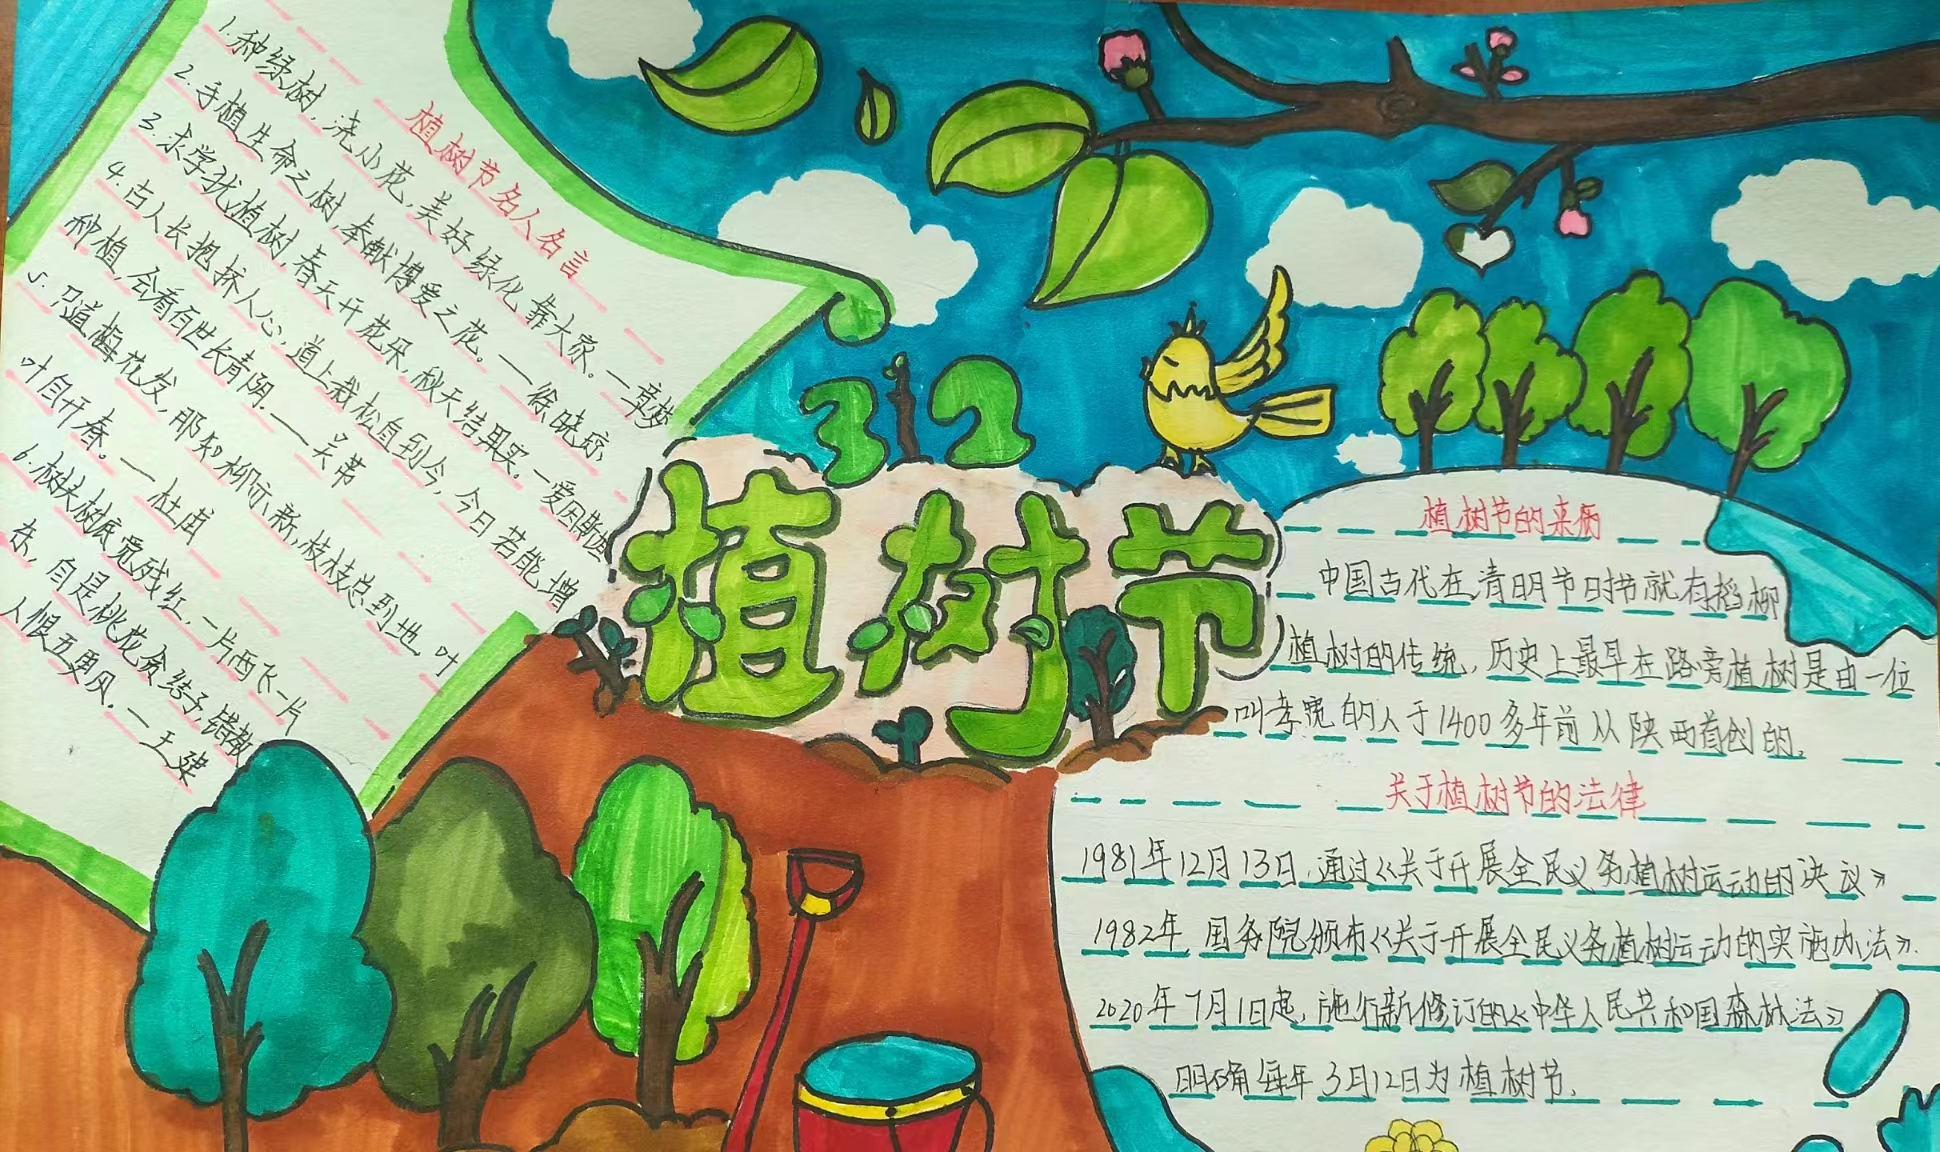 植树节名人名言
1.种绿树,浇小花,美好绿化靠大家。—章梦
2.手植生命之树,奉献博爱之花。—徐晓琼
3.求学犹植树,春天开花朵,秋天结果实。—爱因斯坦
4.古人长抱挤人心,道上栽松直到今,今日若能增
种植,会看百世长青阴。——关蒂
5.只道梅花发,那知柳亦新,枝枝总到地,叶
叶自开春。—杜甫
6.树头树底觅残红,一片西飞一片
东,自是桃花贪结子,错教
人恨五更风。—王建
312
植树节
植树节的来历
中国古代在清明节时节就有插柳
植树的传统,历史上最早在路旁植树是由一位
叫韦宽的人于1400多年前从陕西首创的。
关于植树节的法律
1981年12月13日,通过《关于开展全民义务植树运动的决议》
1982年,国务院颁布《关于开展全民义务植树运动的实施办法》.
2020年7月1日起,施行新修订的《中华人民共和国森林法》
明确每年3月12日为植树节.